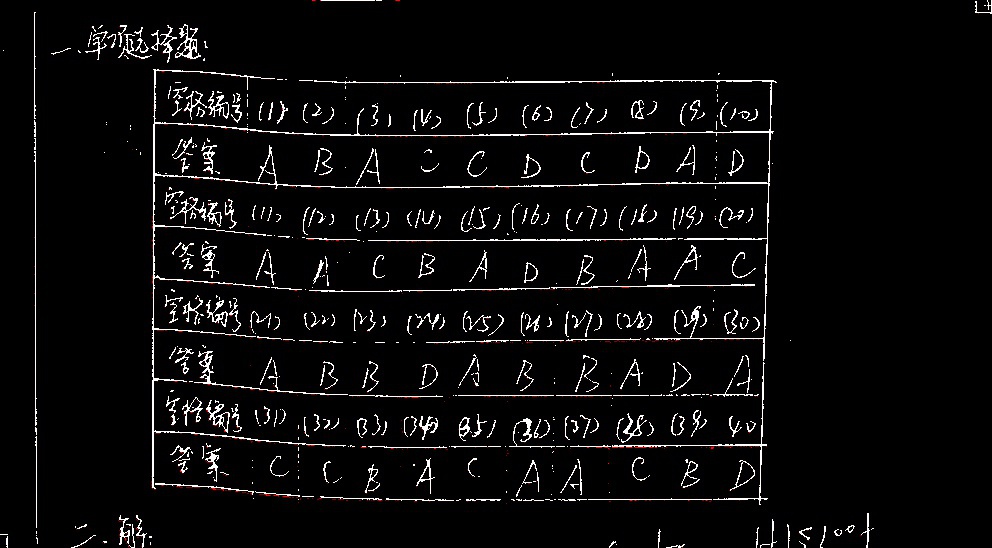 一、单项选择题:
空格编号 (1) (2) (3) (4) (5) (6) (7) (8) (9) (10)
答案 A B A C C D C D A D
空格编号 (11) (12) (13) (14) (15) (16) (17) (18) (19) (20)
答案 A A C B A D B A A C
空格编号 (21) (22) (23) (24) (25) (26) (27) (28) (29) (30)
答案 A B B D A B B A D A
空格编号 (31) (32) (33) (34) (35) (36) (37) (38) (39) 40
答案 C C B A C A A C B D
二、解: